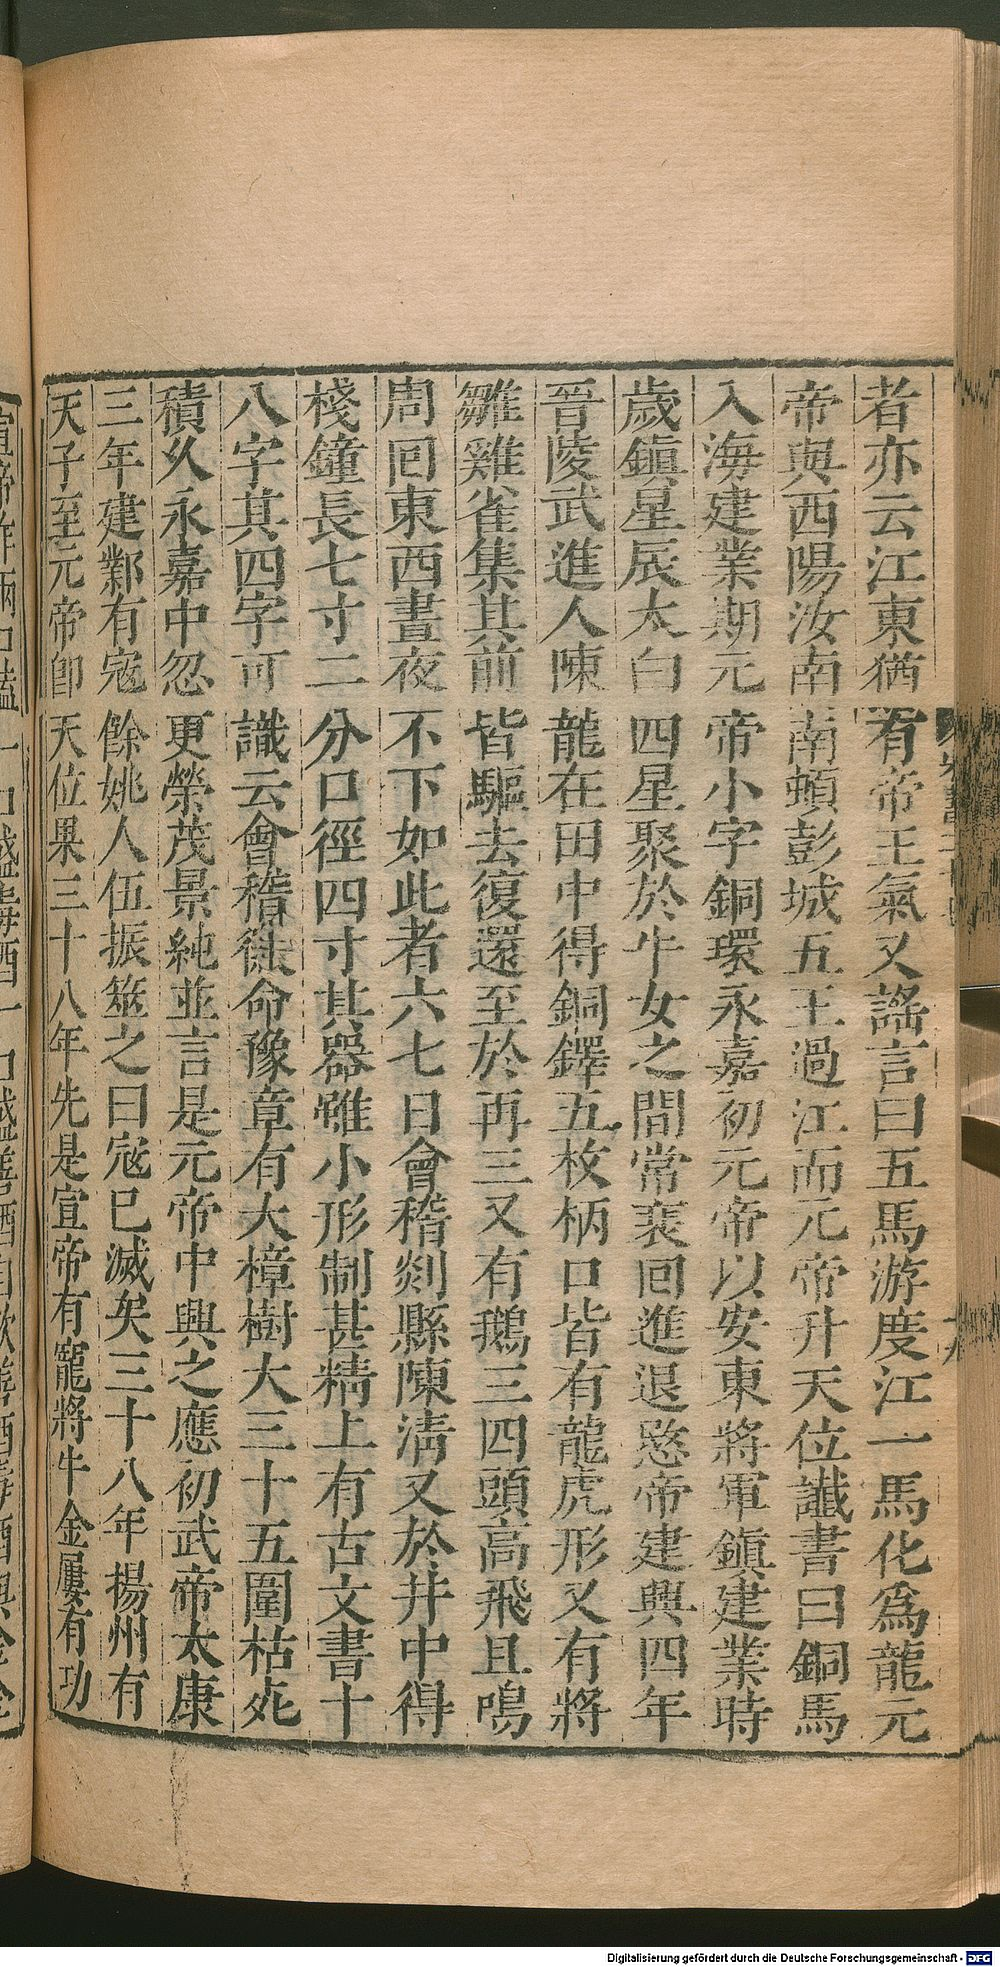 者亦云江東猶有帝王氣又謠言曰五馬游度江一馬化為龍元
帝與西陽汝南南頓彭城五王過江而元帝升天位讖書曰銅馬
入海建業期元帝小字銅環永嘉初元帝以安東將軍鎮建業時
歲鎮星辰太白四星聚於牛女之間常裵回進退愍帝建興四年
晉陵武進人陳龍在田中得銅鐸五枚柄口皆有龍虎形又有將
雛雞雀集其前皆驅去復還至於再三又有鵝三四頭高飛且鳴
周回東西晝夜不下如此者六七日會稽剡縣陳清又於井中得
棧鐘長七寸二分口徑四寸其器雖小形制甚精上有古文書十
八字其四字可識云會稽徙命豫章有大樟樹大三十五圍枯死
積久永嘉中忽更榮茂景純並言是元帝中興之應初武帝太康
三年建鄴有寇餘姚人伍振筮之曰寇已滅矣三十八年揚州有
天子至元帝即天位果三十八年先是宣帝有寵將牛金屢有功
Digitalisierung gefördert durch die Deutsche Forschungsgemeinschaft - DFG